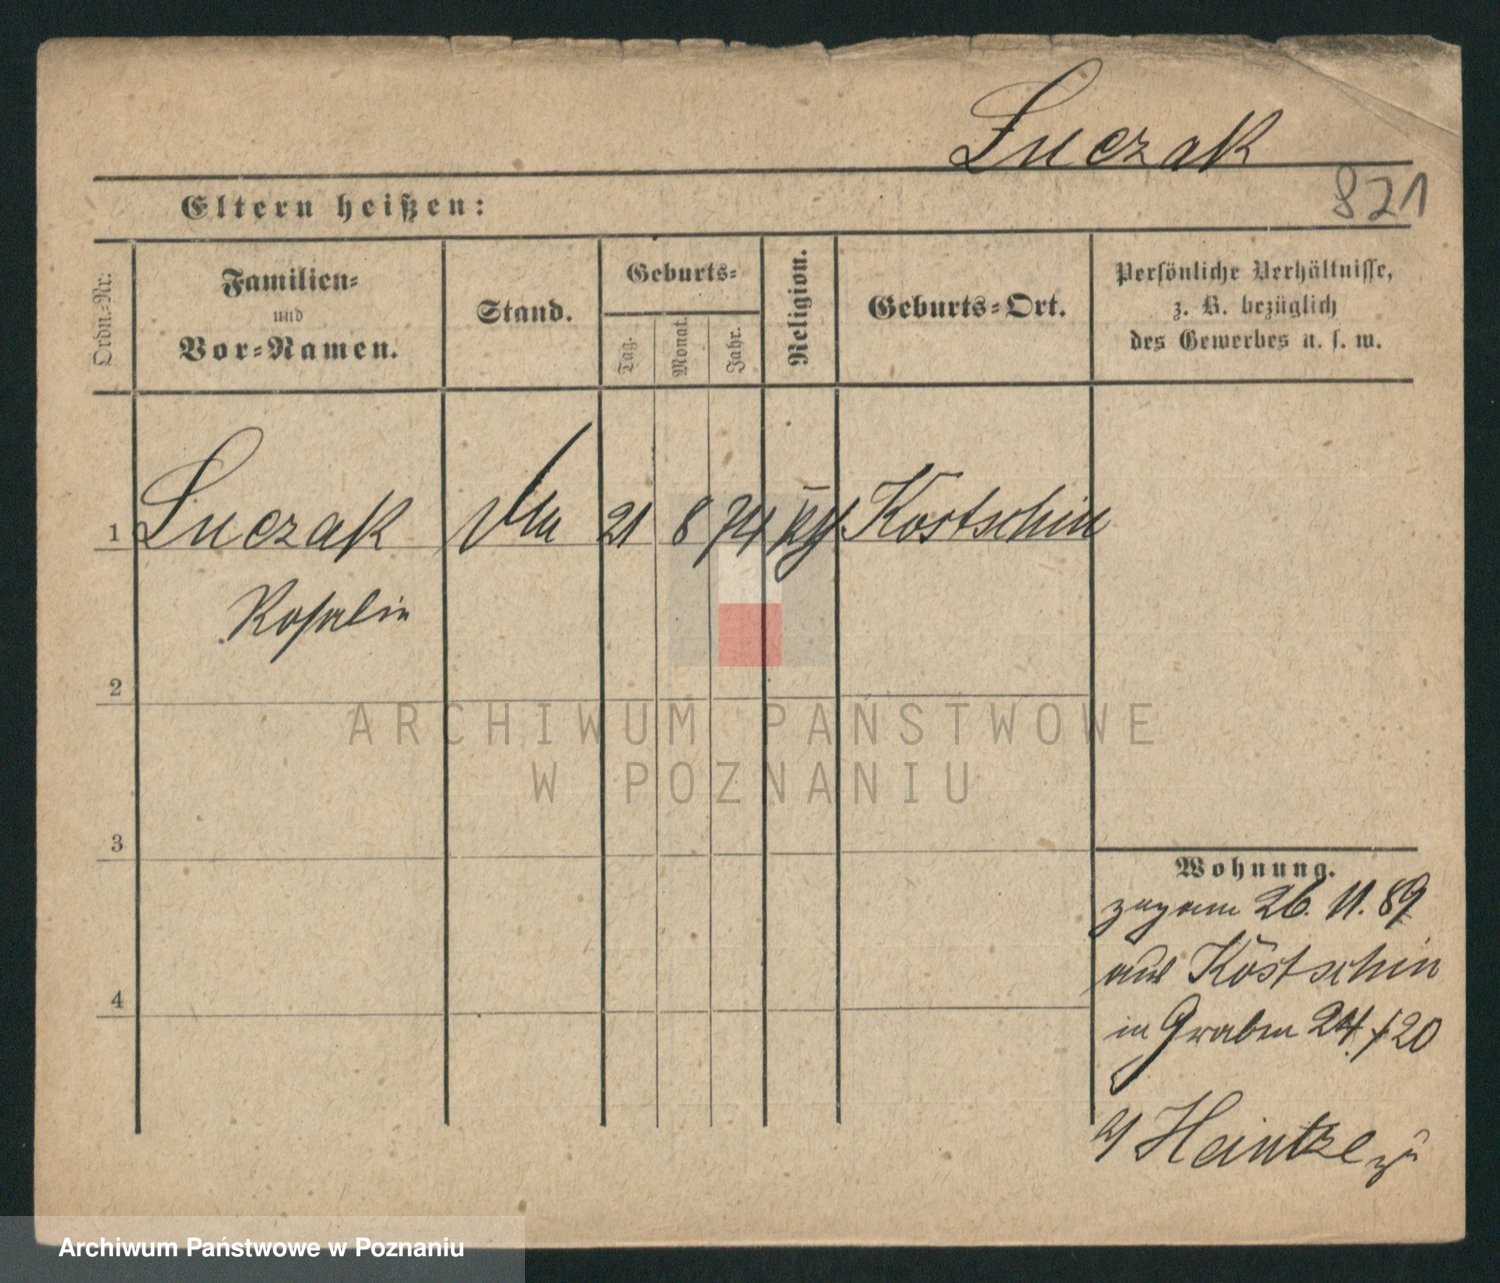 Luczak
821
Eltern heißen:
Ordn.-Nr.
Familien-
und
Vor-Namen.
Stand.
Geburts-
Tag.
Monat.
Jahr.
Religion.
Geburts-Ort.
Persönliche Verhältnisse,
z. B. bezüglich
des Gewerbes u. s. w.
1 Luczak 21 8 74 Kostschin
Rosalie
2
3
4
Wohnung.
zug am 26. 11. 89
aus Kostschin
in Graben 24./20
Heintze
ARCHIWUM PAŃSTWOWE
W POZNANIU
Archiwum Państwowe w Poznaniu